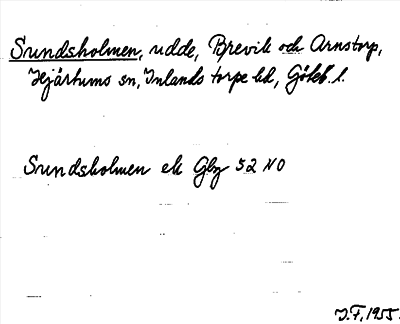 Sundsholmen, udde, Brevik och Arnstorp,
Hjärtums sn, Inlands torpe hd, Göteb. l.
Sundsholmen ek Gbg 52 NO
J.F, 1955.